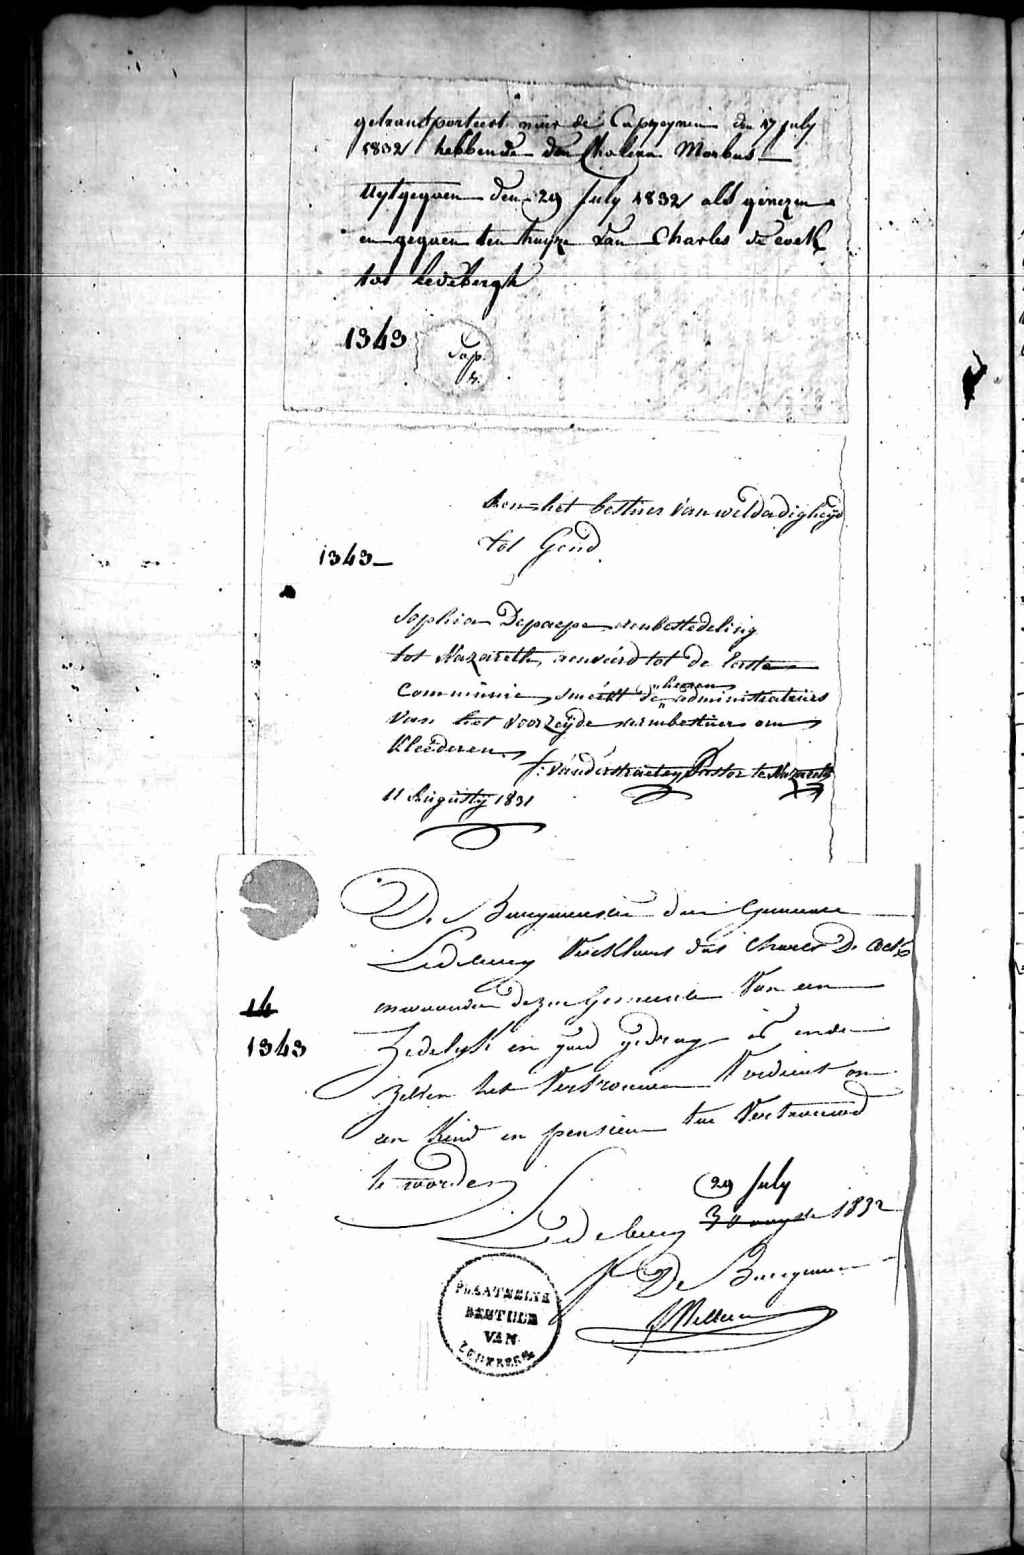 getransporteert naer de Capucynen den 17 July
1832 hebbende den Cholera Morbus
Uytgegeven den 29 July 1832 als genezen
en gegeven ten huyze van Charles de Cock
tot Ledebergh
1343
Pap.
Aen het bestier van weldadigheyd
tot Gend
1343
Sophia Depaepe aenbestedeling
tot Nazareth, aenveird tot de Eerste
Communie, smeekt de heeren administrateurs
van het voorzeyde armbestier om
Kleederen.
F: Vanderstraeten Pastor te Nazareth
11 Augusty 1831
De Burgmeester der Gemeente
Ledeberg Verklaert dat Charles De Cock
inwoonder dezer Gemeente Van een
Zedelyk en goed gedrag is ende
zelven het Vertrouwen Verdient om
een Kind in pensioen toe Vertrouwd
te worden
14
1343
29 July
Ledeberg 1832
De Burgmeester
PLAATSELYK
BESTUUR
VAN
LEDEBERG